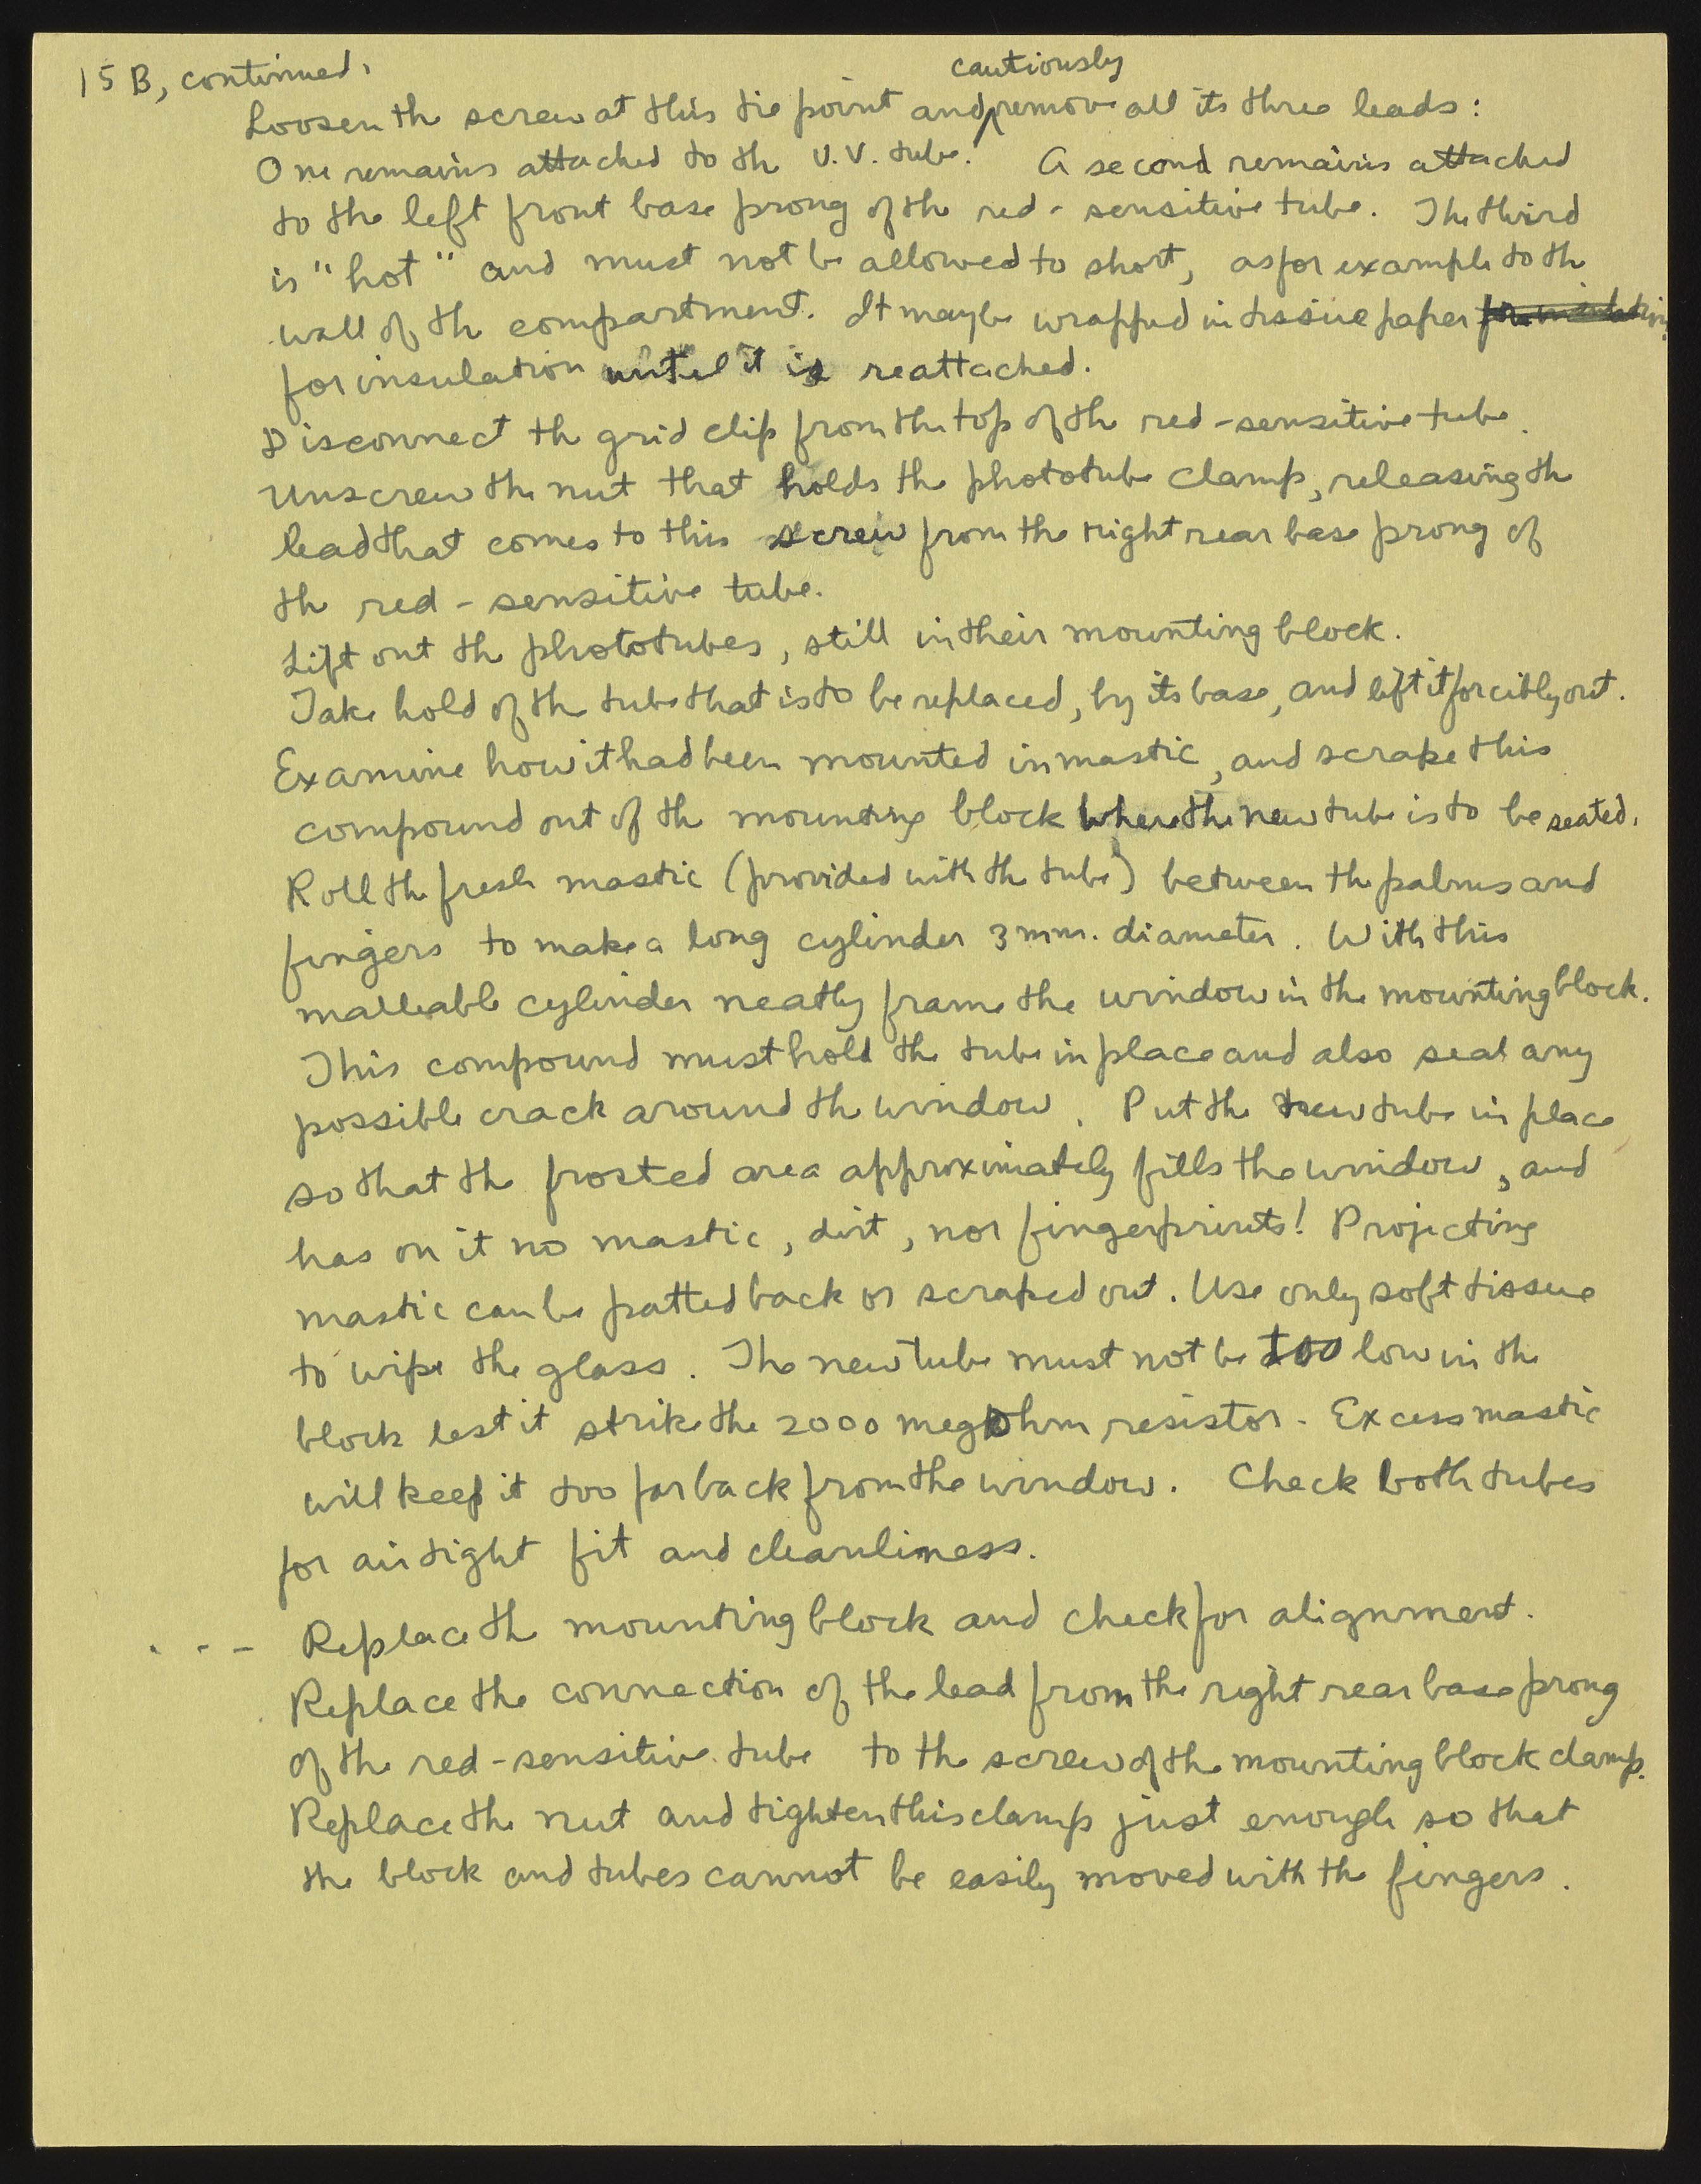 15 B, continued.
cautiously
Loosen the screw at this tie point and remove all its three leads:
One remains attached to the U.V. tube. A second remains attached
to the left front base prong of the red-sensitive tube. The third
is "hot" and must not be allowed to short, as for example to the
wall of the compartment. It may be wrapped in tissue paper
for insulation until it is reattached.
Disconnect the grid clip from the top of the red-sensitive tube.
Unscrew the nut that holds the phototube clamp, releasing the
lead that comes to this screw from the right rear base prong of
the red-sensitive tube.
Lift out the phototubes, still in their mounting block.
Take hold of the tube that is to be replaced, by its base, and lift it forcibly out.
Examine how it had been mounted in mastic, and scrape this
compound out of the mounting block where the new tube is to be seated.
Roll the fresh mastic (provided with the tube) between the palms and
fingers to make a long cylinder 3 mm. diameter. With this
malleable cylinder neatly frame the window in the mounting block.
This compound must hold the tube in place and also seal any
possible crack around the window. Put the new tube in place
so that the frosted area approximately fills the window, and
has on it no mastic, dirt, nor fingerprints! Projecting
mastic can be patted back or scraped out. Use only soft tissue
to wipe the glass. The new tube must not be too low in the
block lest it strike the 2000 megohm resistor. Excess mastic
will keep it too far back from the window. Check both tubes
for air tight fit and cleanliness.
. - - Replace the mounting block and check for alignment.
Replace the connection of the lead from the right rear base prong
of the red-sensitive tube to the screw of the mounting block clamp.
Replace the nut and tighten this clamp just enough so that
the block and tubes cannot be easily moved with the fingers.